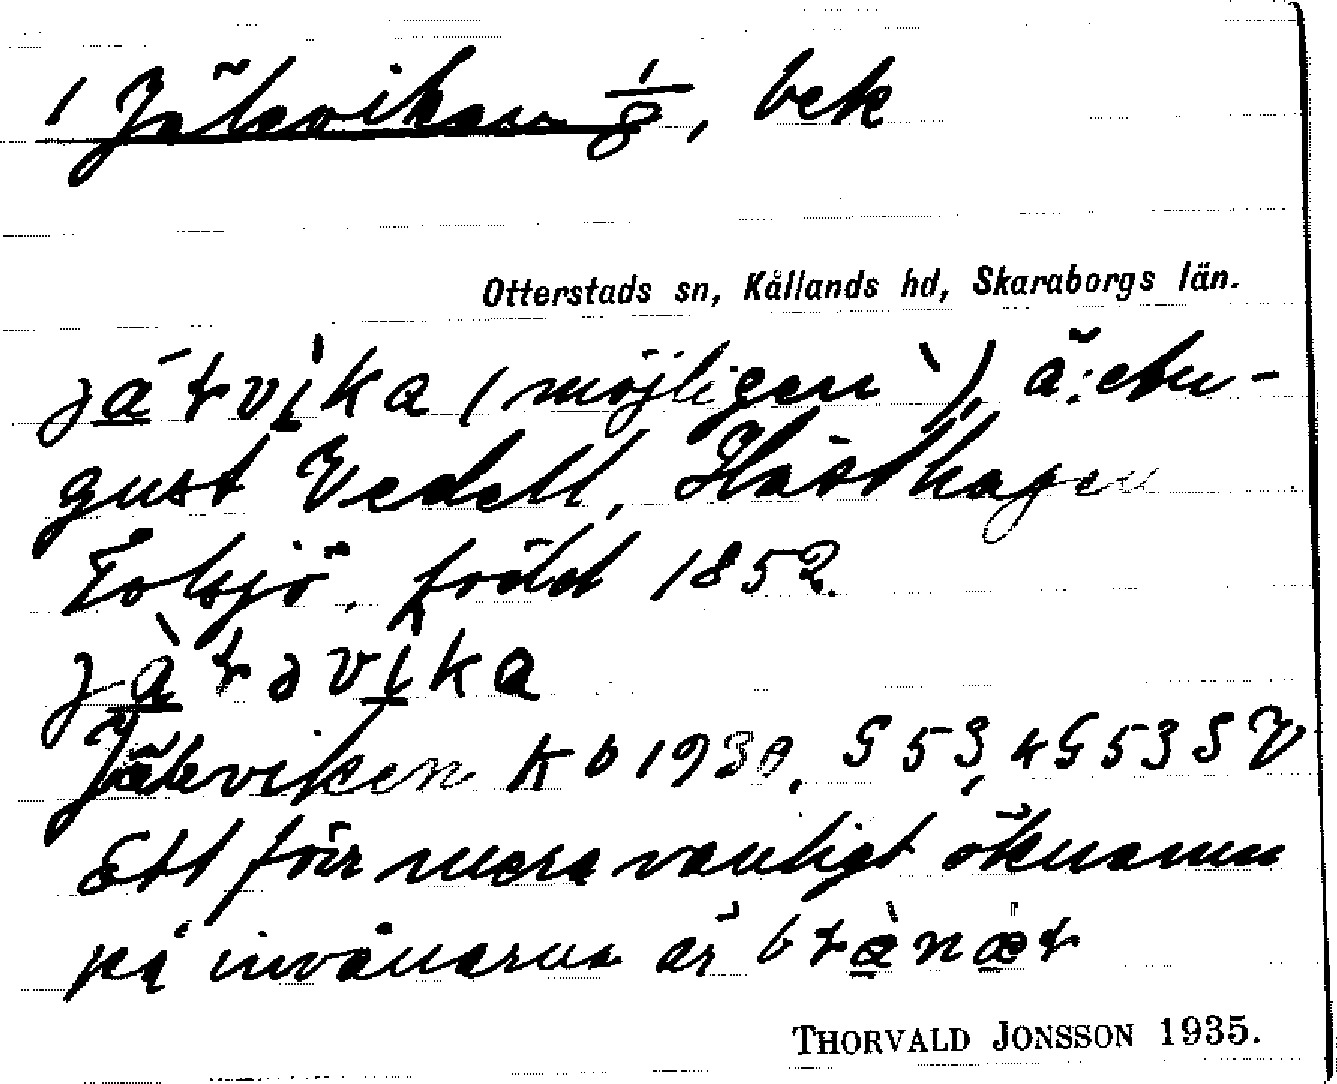 1 Jäleviken 1/8, bek
Otterstads sn, Kållands hd, Skaraborgs län.
játvìka (möjligen `), ä: Au-
gust Vedell, Hästhagen
Tolsjö, född 1852.
jàtəvika
Jäleviken Kb 1930, G 53, 4G53SV
Ett förr mera vanligt öknamn
på invånarna är btænæt
THORVALD JONSSON 1935.